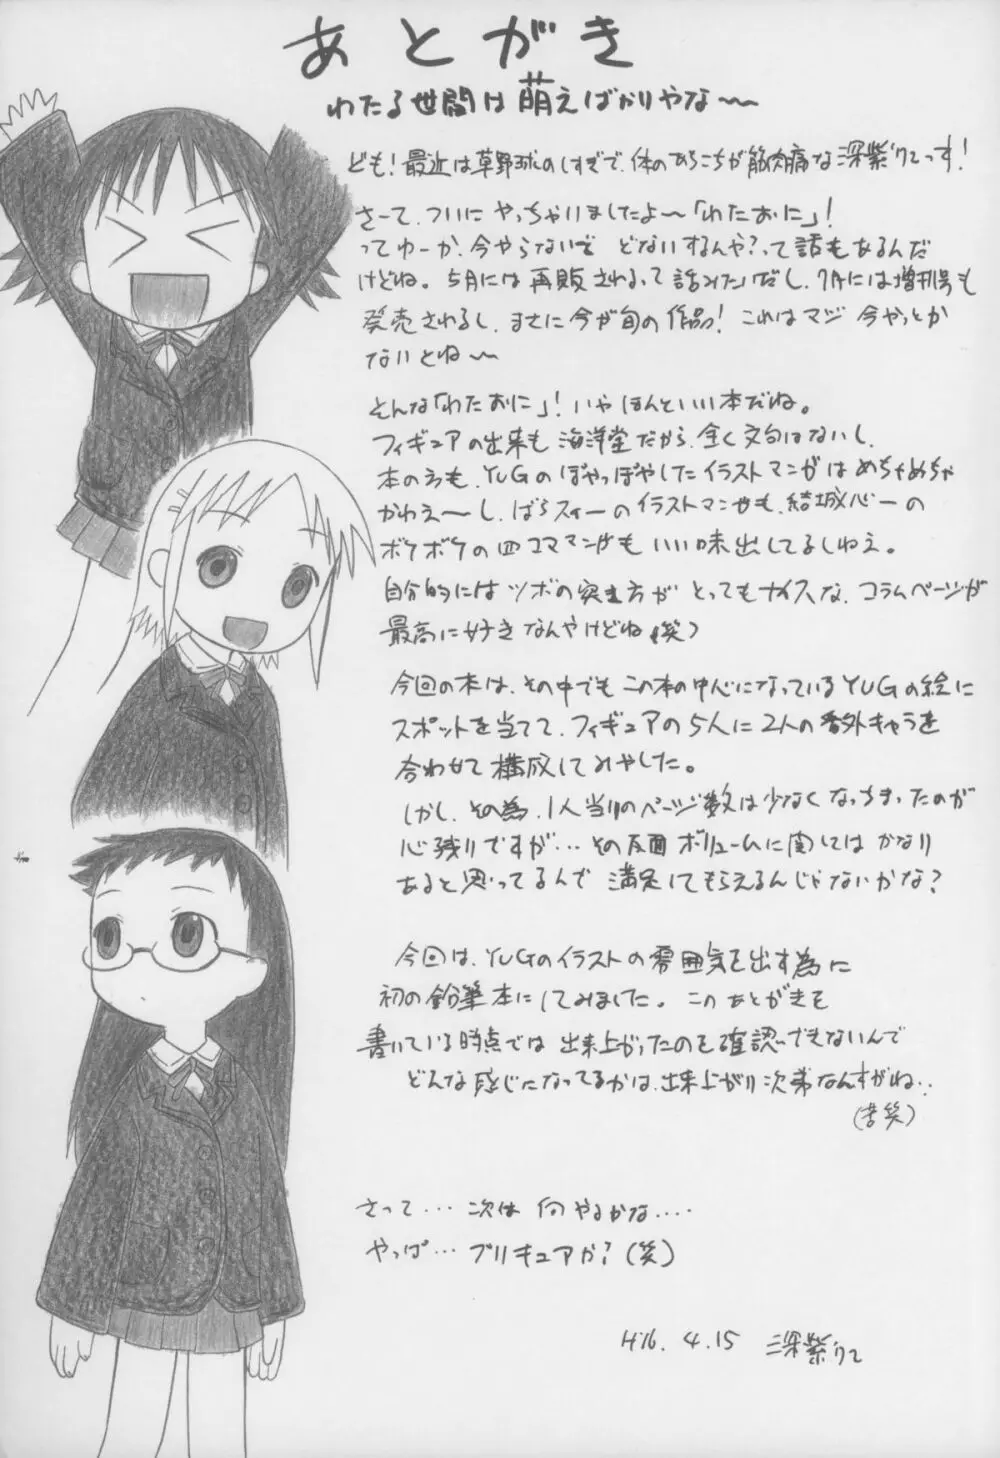 あとがき
わたる世間は萌えばかりやな〜
ども!最近は草野球のしすぎで、体のあちこちが筋肉痛な深紫りてっす!
さーて、ついにやっちゃいましたよ〜「わたおに」!
ってゆーか、今やらないで どないするんや?って話もあるんだ
けどね。5月には再販されるって話みたいだし、7月には増刊号も
発売されるし、まさに今が旬の作品! これはマジ 今やっとか
ないとね〜
そんな「わたおに」! いやほんといい本だね。
フィギュアの出来も 海洋堂だから、全く文句はないし、
本の方も、YUGのぽやっぽやしたイラストマンガはめちゃめちゃ
かわえ〜し、ばらスィーのイラストマンガも、結城心一の
ボケボケの四コママンガも いい味出してるしねえ。
自分的にはツボの突き方が とってもナイスな、コラムページが
最高に好きなんやけどね(笑)
今回の本は、その中でもこの本の中心になっているYUGの絵に
スポットを当てて、フィギュアの5人に2人の番外キャラを
合わせて構成してみやした。
しかし、その為、1人当りのページ数は少なくなっちまったのが
心残りですが…その反面ボリュームに関してはかなり
あると思ってるんで 満足してもらえるんじゃないかな?
今回は、YUGのイラストの雰囲気を出す為に
初の鉛筆本にしてみました。このあとがきを
書いている時点では 出来上がったのを確認できないんで
どんな感じになってるかは、出来上がり次第なんすがね‥
(苦笑)
さって… 次は 何やるかな‥‥
やっぱ… プリキュアか?(笑)
H16. 4.15 深紫りて